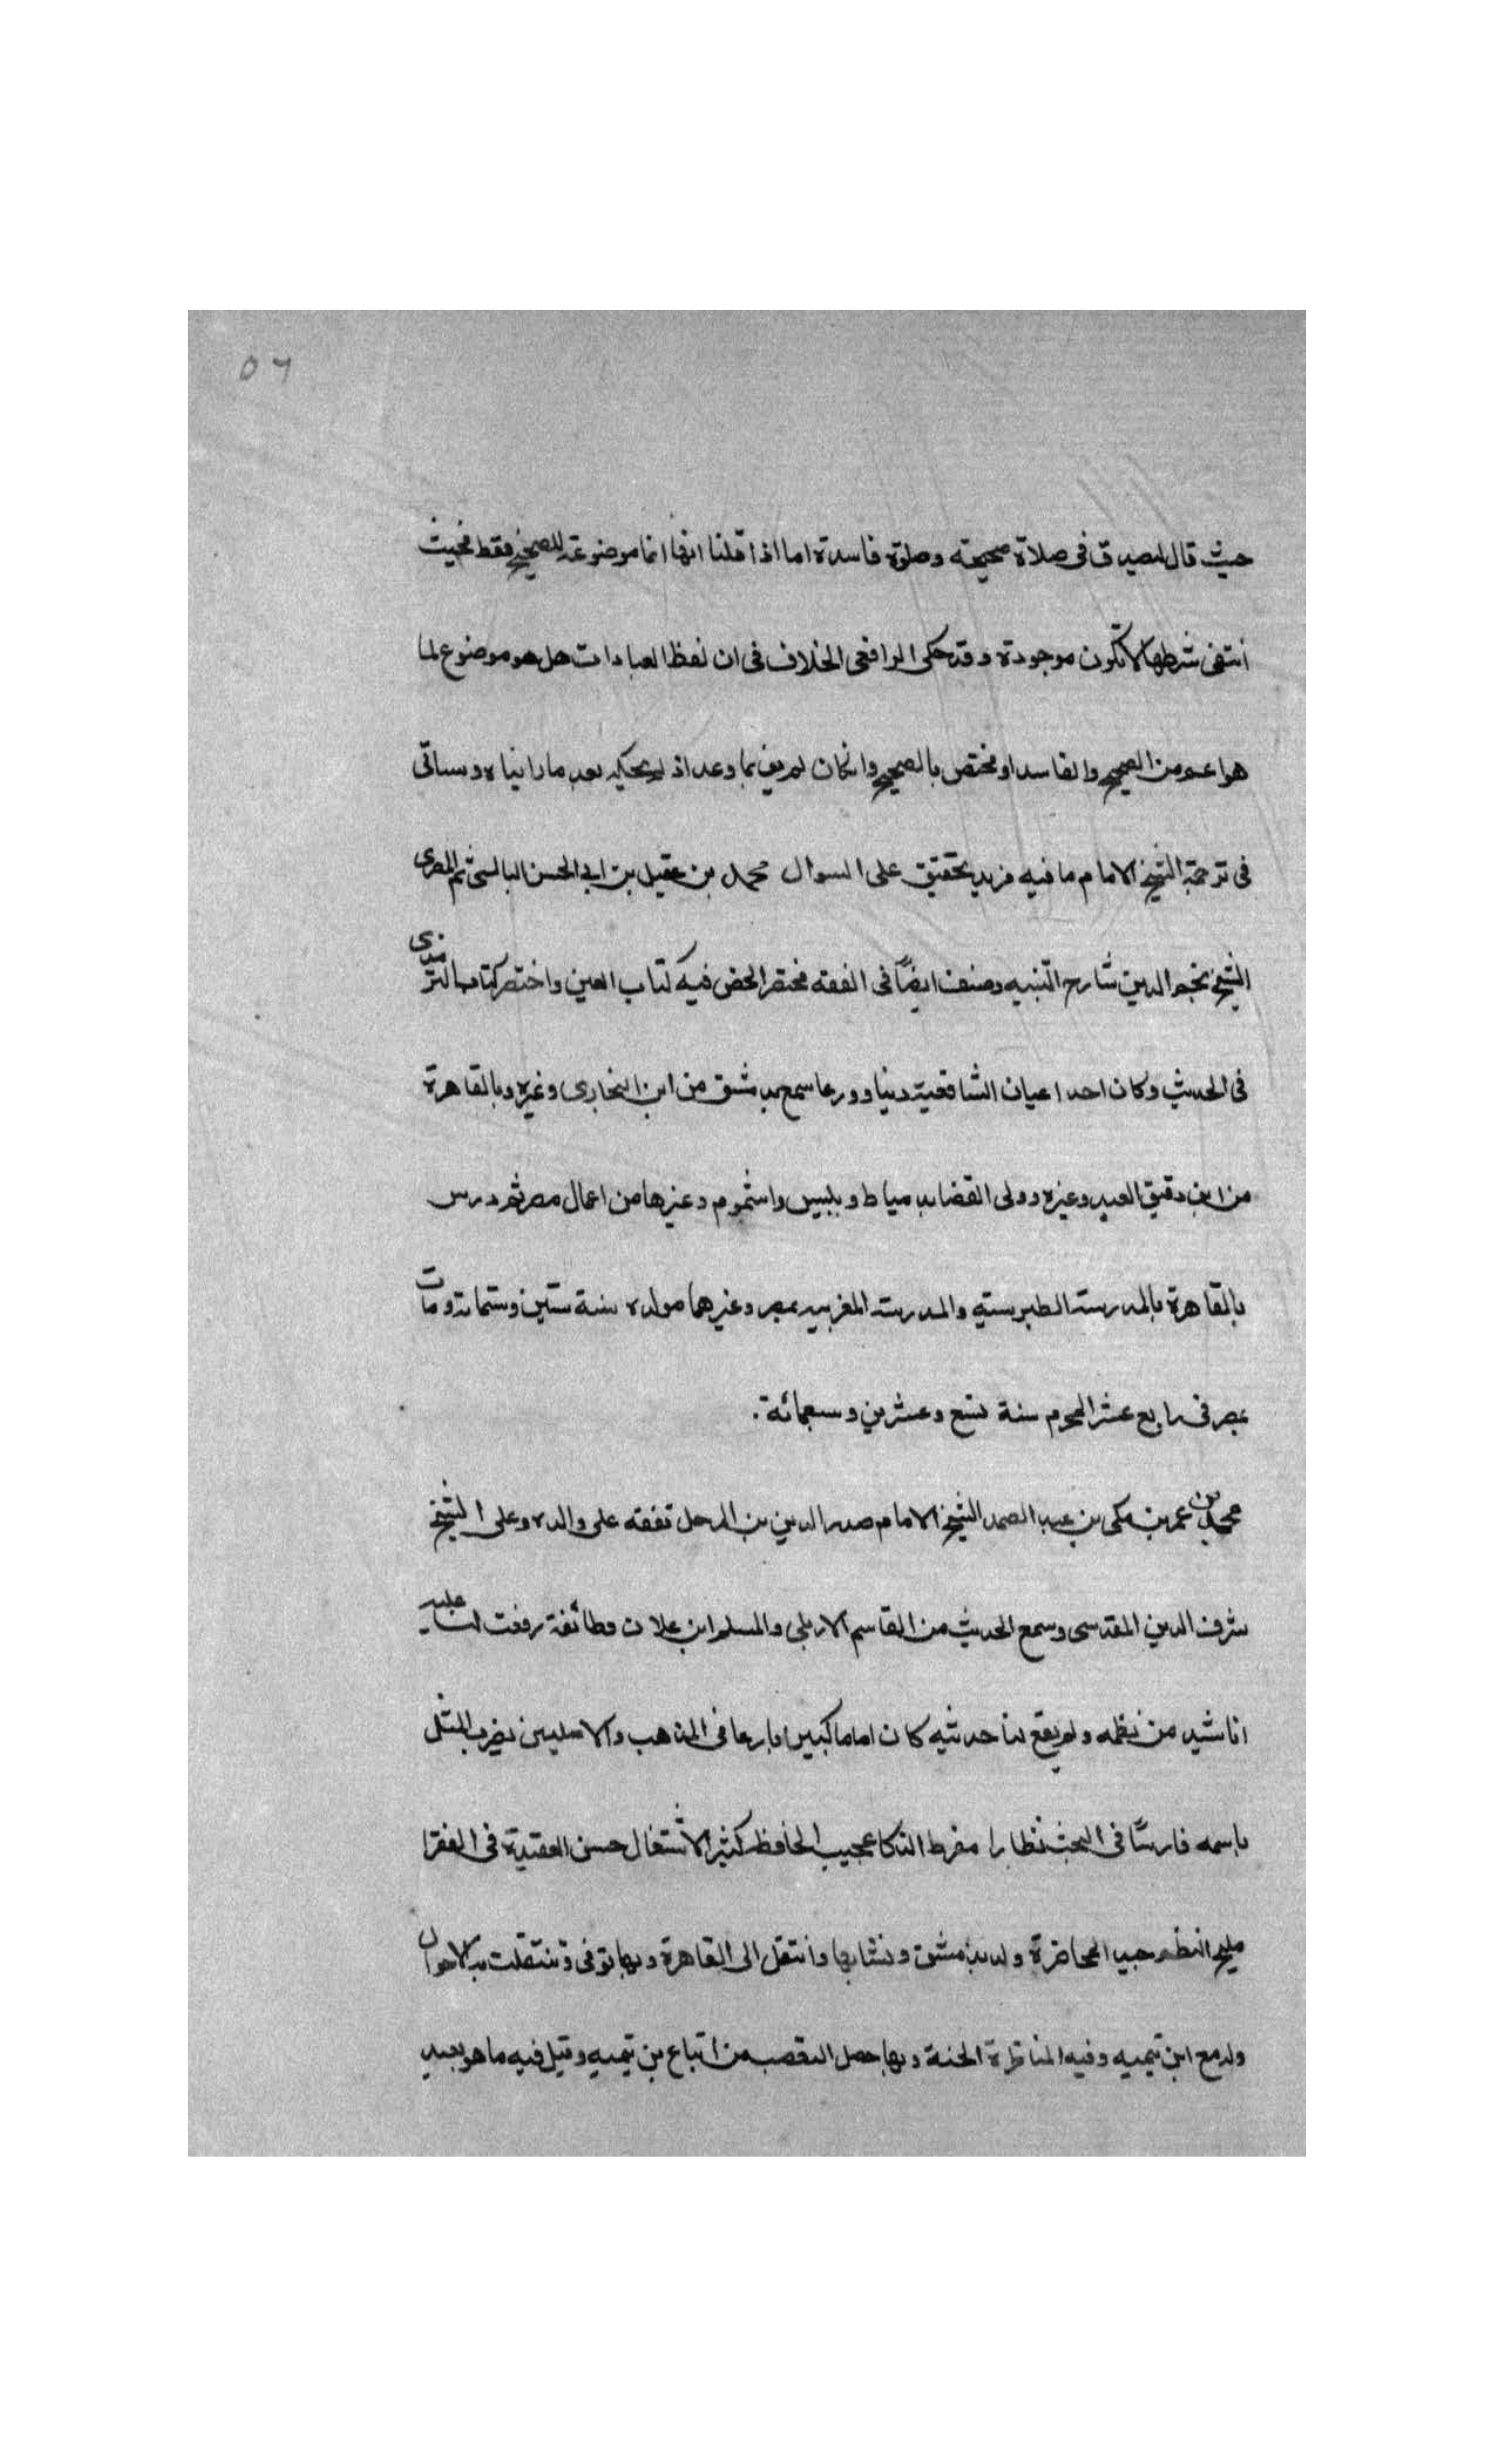 ٥٦
حيث قال لصدق في صلاة صحيحة وصلوة فاسدة اما اذا قلنا انها انما موضوعة للصحيح فقط فحيث
انتفى شرطها لا تكون موجودة وقد حكى الرافعي الخلاف في ان لفظ العبادات هل هو موضوع لما
هو اعم من الصحيح والفاسد او مختص بالصحيح وان كان لم يف بما وعد اذ لم يحكيه بعد ما راينياه وسياتي
في ترجمة الشيخ الامام ما فيه مزيد تحقيق على السوال محمد بن عقيل بن ابي الحسن البالسي ثم المصري
الشيخ نجم الدين شارح التنبيه وصنف ايضًا في الفقه مختصر الخص فيه كتاب العين واختصر كتاب الترمذي
في الحديث وكان احد اعيان الشافعية دينا وورعا سمع بدمشق من ابن البخاري وغيره وبالقاهرة
من ابن دقيق العيد وغيره وولى القضا بدمياط وبلبيس واشموم وغيرها من اعمال مصر ثم درس
بالقاهرة بالمدرسة الطبرسية والمدرسة المغربيه بمصر وغيرهما مولده سنة ستين وستمائة ومات
بمصر في رابع عشر المحرم سنة تسع وعشرين وسبعمائة.
محمد بن عمر بن مكي بن عبد الصمد الشيخ الامام صدر الدين بن المرحل تفقه على والده وعلى الشيخ
شرف الدين المقدسي وسمع الحديث من القاسم الاربلي والمسلم ابن علان وطائفة رفعت لنا عليه
اناشيد من نظمه ولم يقع لنا حديثه كان اماما كبيرا بارعا في المذهب والاصلين يضرب المثل
باسمه فارسًا في البحث نظارا مفرط الذكا عجيب الحافظ كثير الاشتغال حسن العقيدة في الفقرا
مليح النظم جيد المحاضرة ولد بدمشق ونشا بها وانتقل الى القاهرة وبها توفي وتنقلت به الاحوال
وله مع ابن تيميه وفيه المناظرة الحسنة وبها حصل التعصب من اتباع بن تيميه وقيل فيه ما هو بعيد